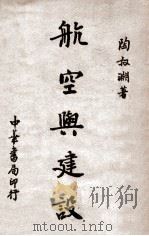 陶叔淵著
航空與建設
中華書局印行